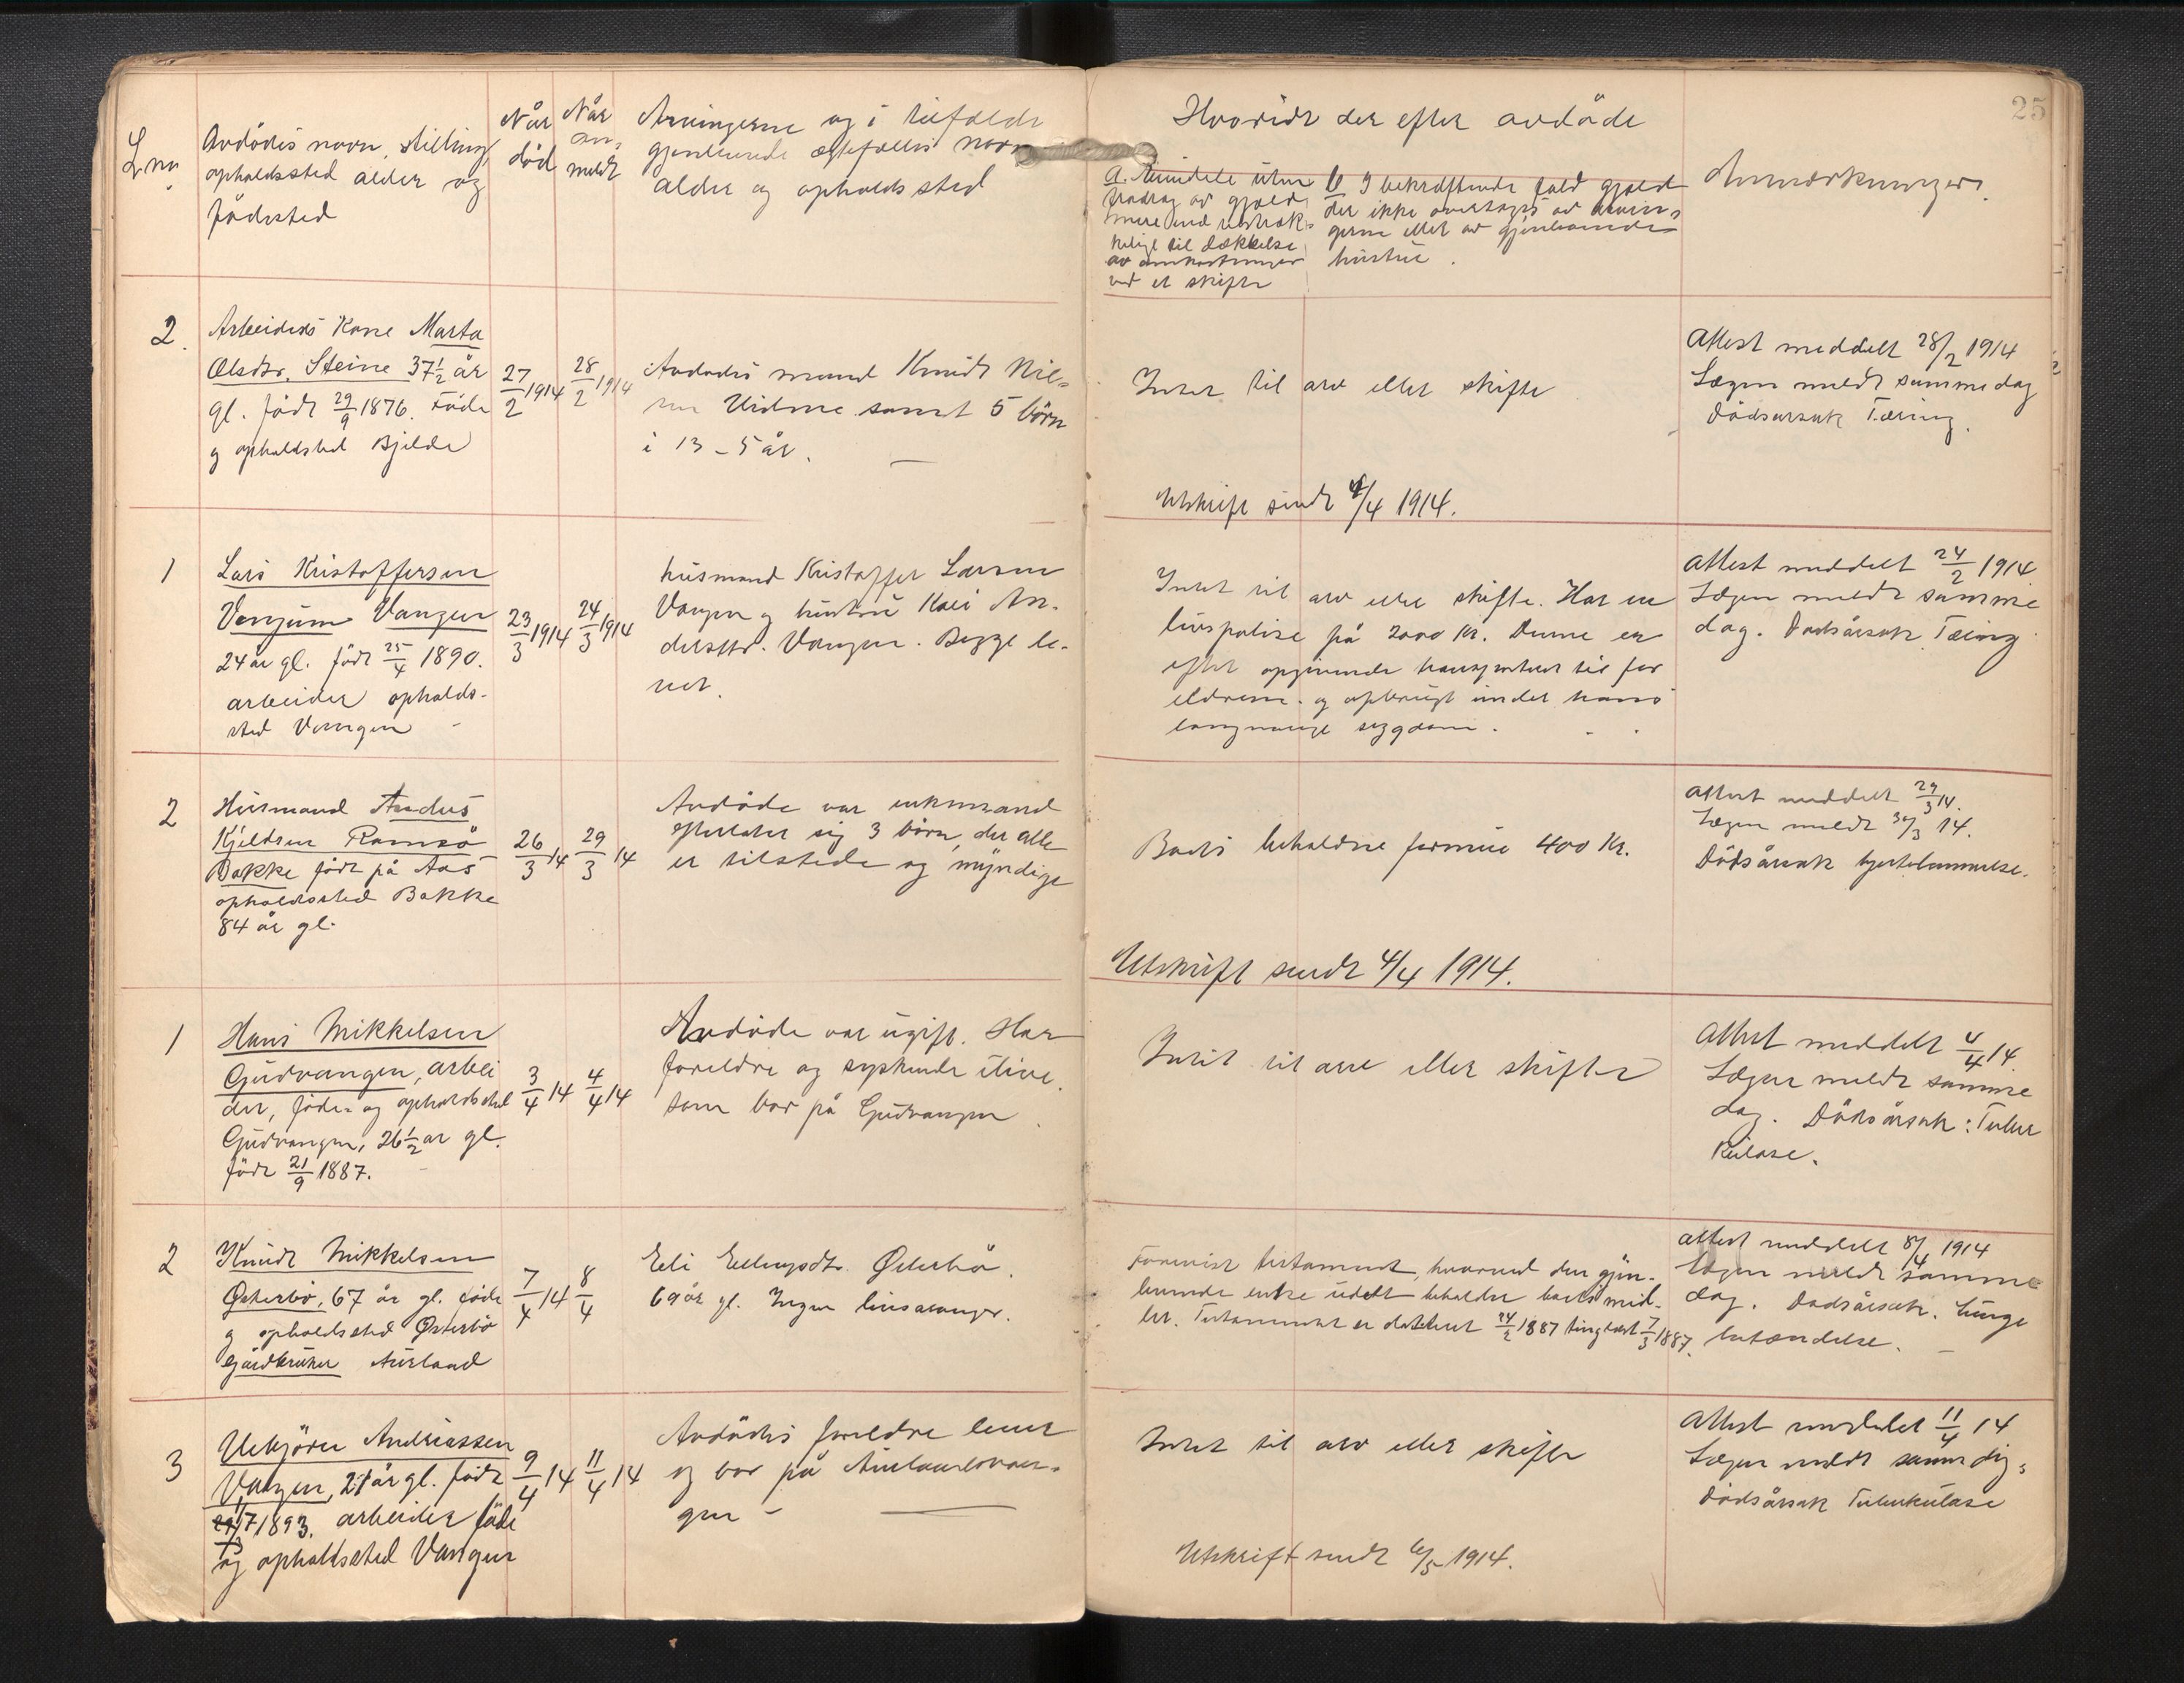 25
L.nr.
Avdödes navn, stilling,
opholdssted alder og
födested
Når
död
Når
an-
meldt
Arvingerne og i tilfælde
gjenlevende ægtefælles navn
alder og opholdssted
Hvorvidt der efter avdöde
a. Arvindele uten
fradrag av gjæld
mere end tilstræk-
kelige til dækkelse
av omkostninger
ved et skifte
b I bekræftende fald gjæld
der ikke overtages av arvin-
gerne eller av gjenlevende
hustru.
Anmærkninger
2.
Arbeiders Kone Marta
Olsdtr. Steine 37 1/2 år
gl. födt 29/9 1876. Föde
og opholdssted Bjelde
27/2 1914
28/2 1914
Avdödes mand Knudt Nil-
sen Vidme samt 5 börn
i 13 - 5 år.
Intet til arv eller skifte
Attest meddelt 28/2 1914
Lægen meldt samme dag
Dödsårsak Tæring.
Utskrift sendt 4/4 1914.
1
Lars Kristoffersen
Vangen
24 år gl. födt 25/4 1890.
arbeider opholds-
sted Vangen
23/3 1914
24/3 1914
husmand Kristoffer Larsen
Vangen og hustru Kari An-
dersdtr. Vangen. Begge le-
ver.
Intet til arv eller skifte. Har en
livspolise på 2000 Kr. Denne er
efter opgivende transportert til for
eldrene og opbrugt under hans
langvarige sygdom.
Attest meddelt 24/2 1914
Lægen meldt samme
dag. Dödsårsak Tæring
2
Husmand Anders
Kjeldsen Ramsö
Bakke födt på Aas
opholdssted Bakke
84 år gl.
26/3 14
29/3 14
Avdöde var enkemand
efterlater sig 3 börn, der alle
er tilstede og myndige
Boets beholdne formue 400 Kr.
Attest meddelt 29/3 14.
Lægen meldt 30/3 14.
Dödsårsak hjertelammelse.
Utskrift sendt 4/4 1914.
1
Hans Mikkelsen
Gudvangen, arbei
der, föde- og opholdssted
Gudvangen, 26 1/2 år gl.
födt 21/9 1887.
3/4 14
4/4 14
Avdöde var ugift. Har
foreldre og syskende ilive.
som bor på Gudvangen
Intet til arv eller skifte
Attest meddelt 4/4 14.
Lægen meldt samme
dag. Dödsårsak: Tuber
kulose.
2
Knudt Mikkelsen
Østerbö, 67 år gl. föde
og opholdssted Østerbö
Gårdbruker Aurland
7/4 14
8/4
Eli Ellingsdtr. Østerbö.
69 år gl. Ingen livsarvinger.
Forevist testament, hvorved den gjen-
levende enke udelt beholder boets mid-
ler. Testamentet er datert 24/2 1887 tinglæst 7/3 1887.
Attest meddelt 8/4 1914
Lægen meldt samme
dag. Dödsårsak. Lunge
betændelse.
3
Andreassen
Vangen, 21 år gl. födt
17 1893. arbeider föde
og opholdssted Vangen
9/4 14
11/4 14
Avdödes foreldre lever
og bor på Aurlandsvan-
gen -
Intet til arv eller skifte
Attest meddelt 11/4 14
Lægen meldt samme dag,
Dödsårsak Tuberkulose
Utskrift sendt 6/5 1914.